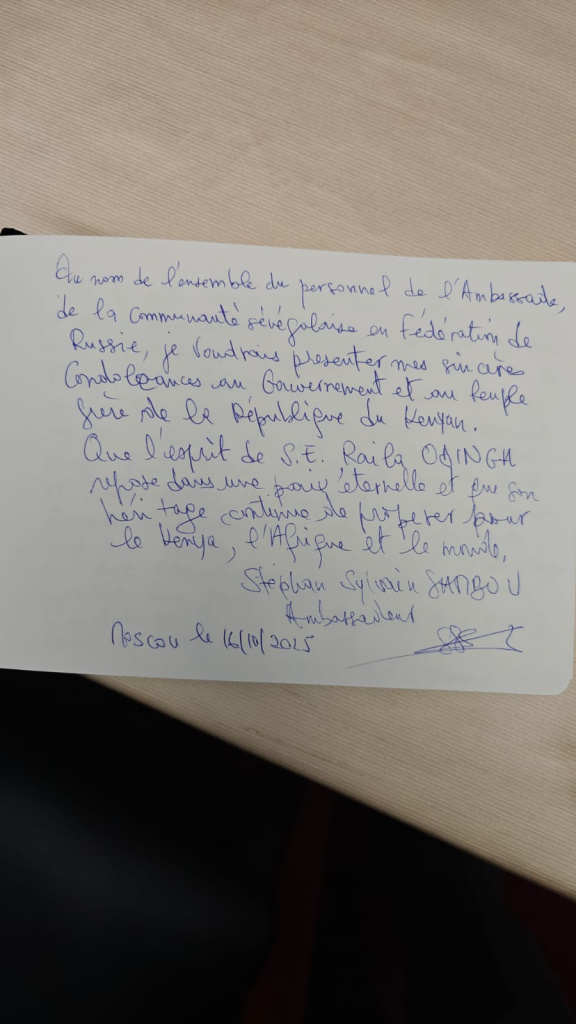 Au nom de l'ensemble du personnel de l'Ambassade,
de la Communauté sénégalaise en Fédération de
Russie, je voudrais presenter mes sincères
Condoléances au Gouvernement et au Peuple
frère de la République du Kenyan.
Que l'esprit de S.E. Raila ODINGA
repose dans une paix éternelle et que son
héritage continue de prospérer pour
le Kenya, l'Afrique et le monde.
Stéphan Sylvain SAMBOU
Ambassadeur
Moscou le 16/10/2025